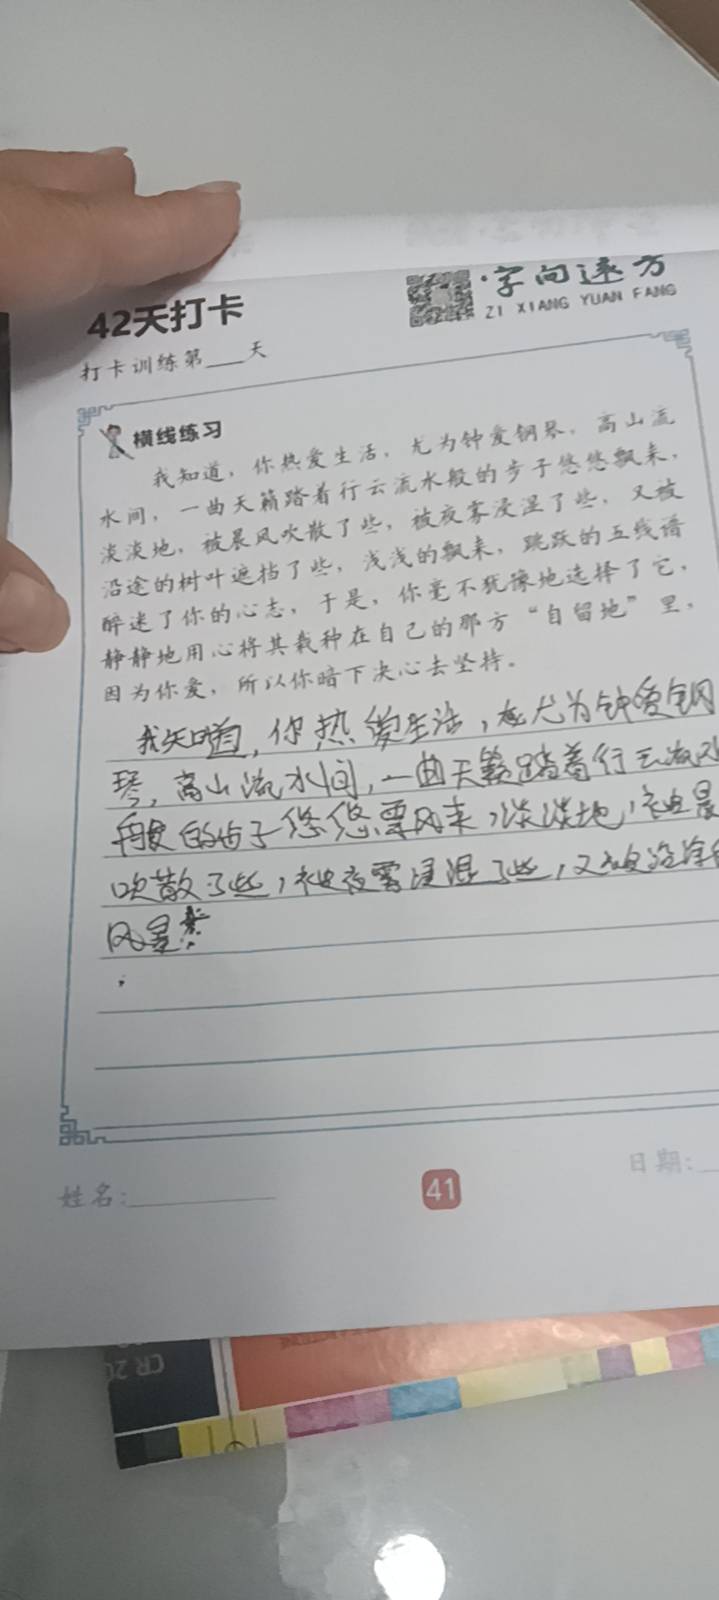 字向远方
ZI XIANG YUAN FANG
42天打卡
打卡训练第___天
横线练习
我知道，你热爱生活，尤为钟爱钢琴，高山流
水间，一曲天籁踏着行云流水般的步子悠悠飘来，
淡淡地，被晨风吹散了些，被夜雾浸湿了些，又被
沿途的树叶遮挡了些，浅浅的飘来，跳跃的五线谱
醉迷了你的心志，于是，你毫不犹豫地选择了它，
静静地用心将其栽种在自己的那方“自留地”里，
因为你爱，所以你暗下决心去坚持。
我知道，你热爱生活，尤为钟爱钢
琴，高山流水间，一曲天籁踏着行云流水
般的步子悠悠飘来，淡淡地，被晨
吹散了些，被夜雾浸湿了些，又被沿途
风景
姓名：
41
日期：
CR 20